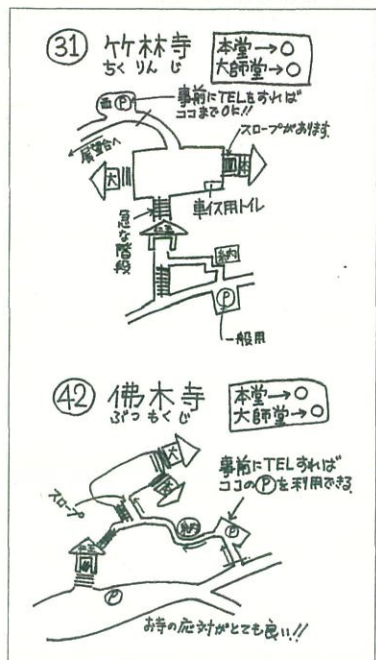 31 竹林寺
ちくりんじ
本堂→○
大師堂→○
P
事前にTELをすれば
ココまでOK!!
スロープがあります。
展望台へ
大
本
車イス用トイレ
急な階段
仁王
納
P
一般用
42 佛木寺
ぶつもくじ
本堂→○
大師堂→○
大
本
事前にTELすれば
ココのPを利用できる
スロープ
納
P
仁王
P
お寺の応対がとても良い!!